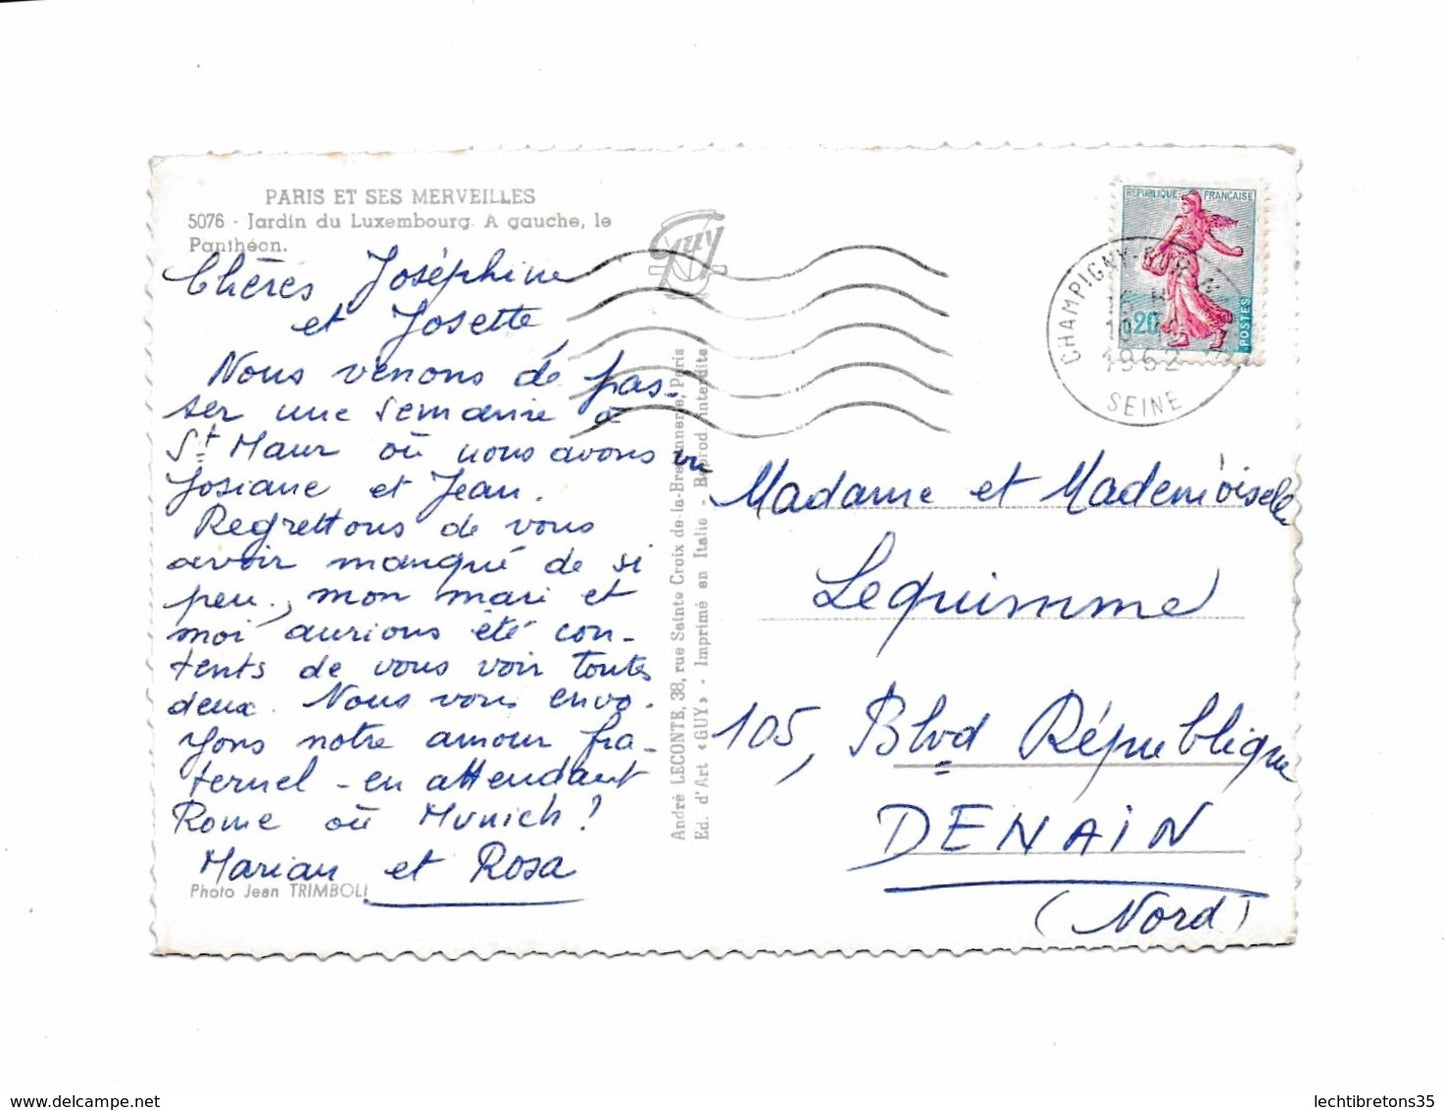 PARIS ET SES MERVEILLES
5076 - Jardin du Luxembourg. A gauche, le
Panthéon.
Chères Joséphine
et Josette
Nous venons de pas-
ser une semaine à
St Maur où nous avons vu
Josiane et Jean.
Regrettons de vous
avoir manqué de si
peu., mon mari et
moi aurions été con-
tents de vous voir toutes
deux. Nous vous envo-
yons notre amour fra-
ternel - en attendant
Rome où Munich!
Marian et Rosa
Photo Jean TRIMBOLI
Guy
André LECONTE, 38, rue Sainte Croix de-la-Bretonnerie, Paris
Ed. d'Art «GUY» - Imprimé en Italie - Reprod. interdite
REPUBLIQUE FRANCAISE
0,20
POSTES
CHAMPIGNY-SUR-
10
1962
SEINE
Madame et Mademoiselle
Lequimme
105, Blvd République
DENAIN
(Nord)
www.delcampe.net
lechtibretons35